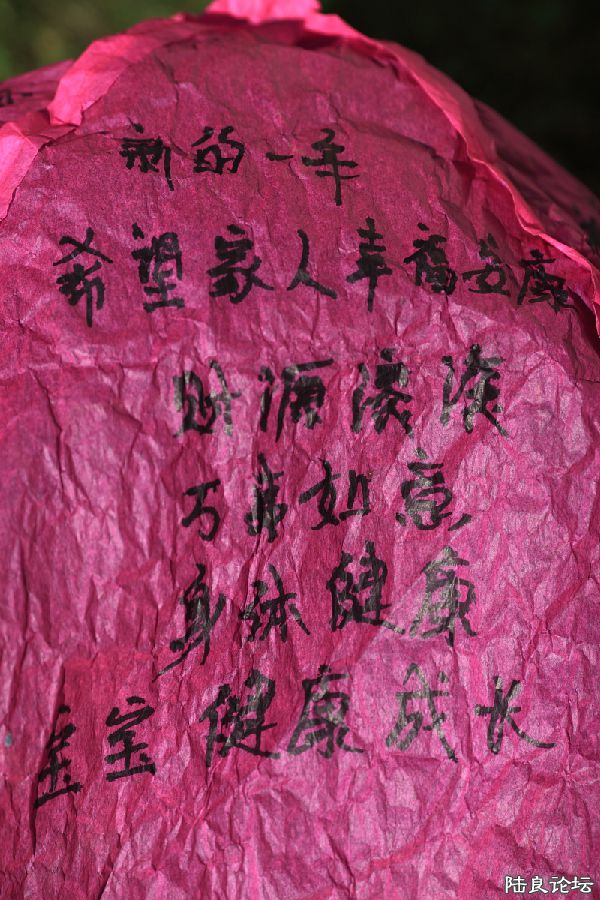 新的一年
希望家人幸福安康
财源滚滚
万事如意
身体健康
宝宝健康成长
陆良论坛